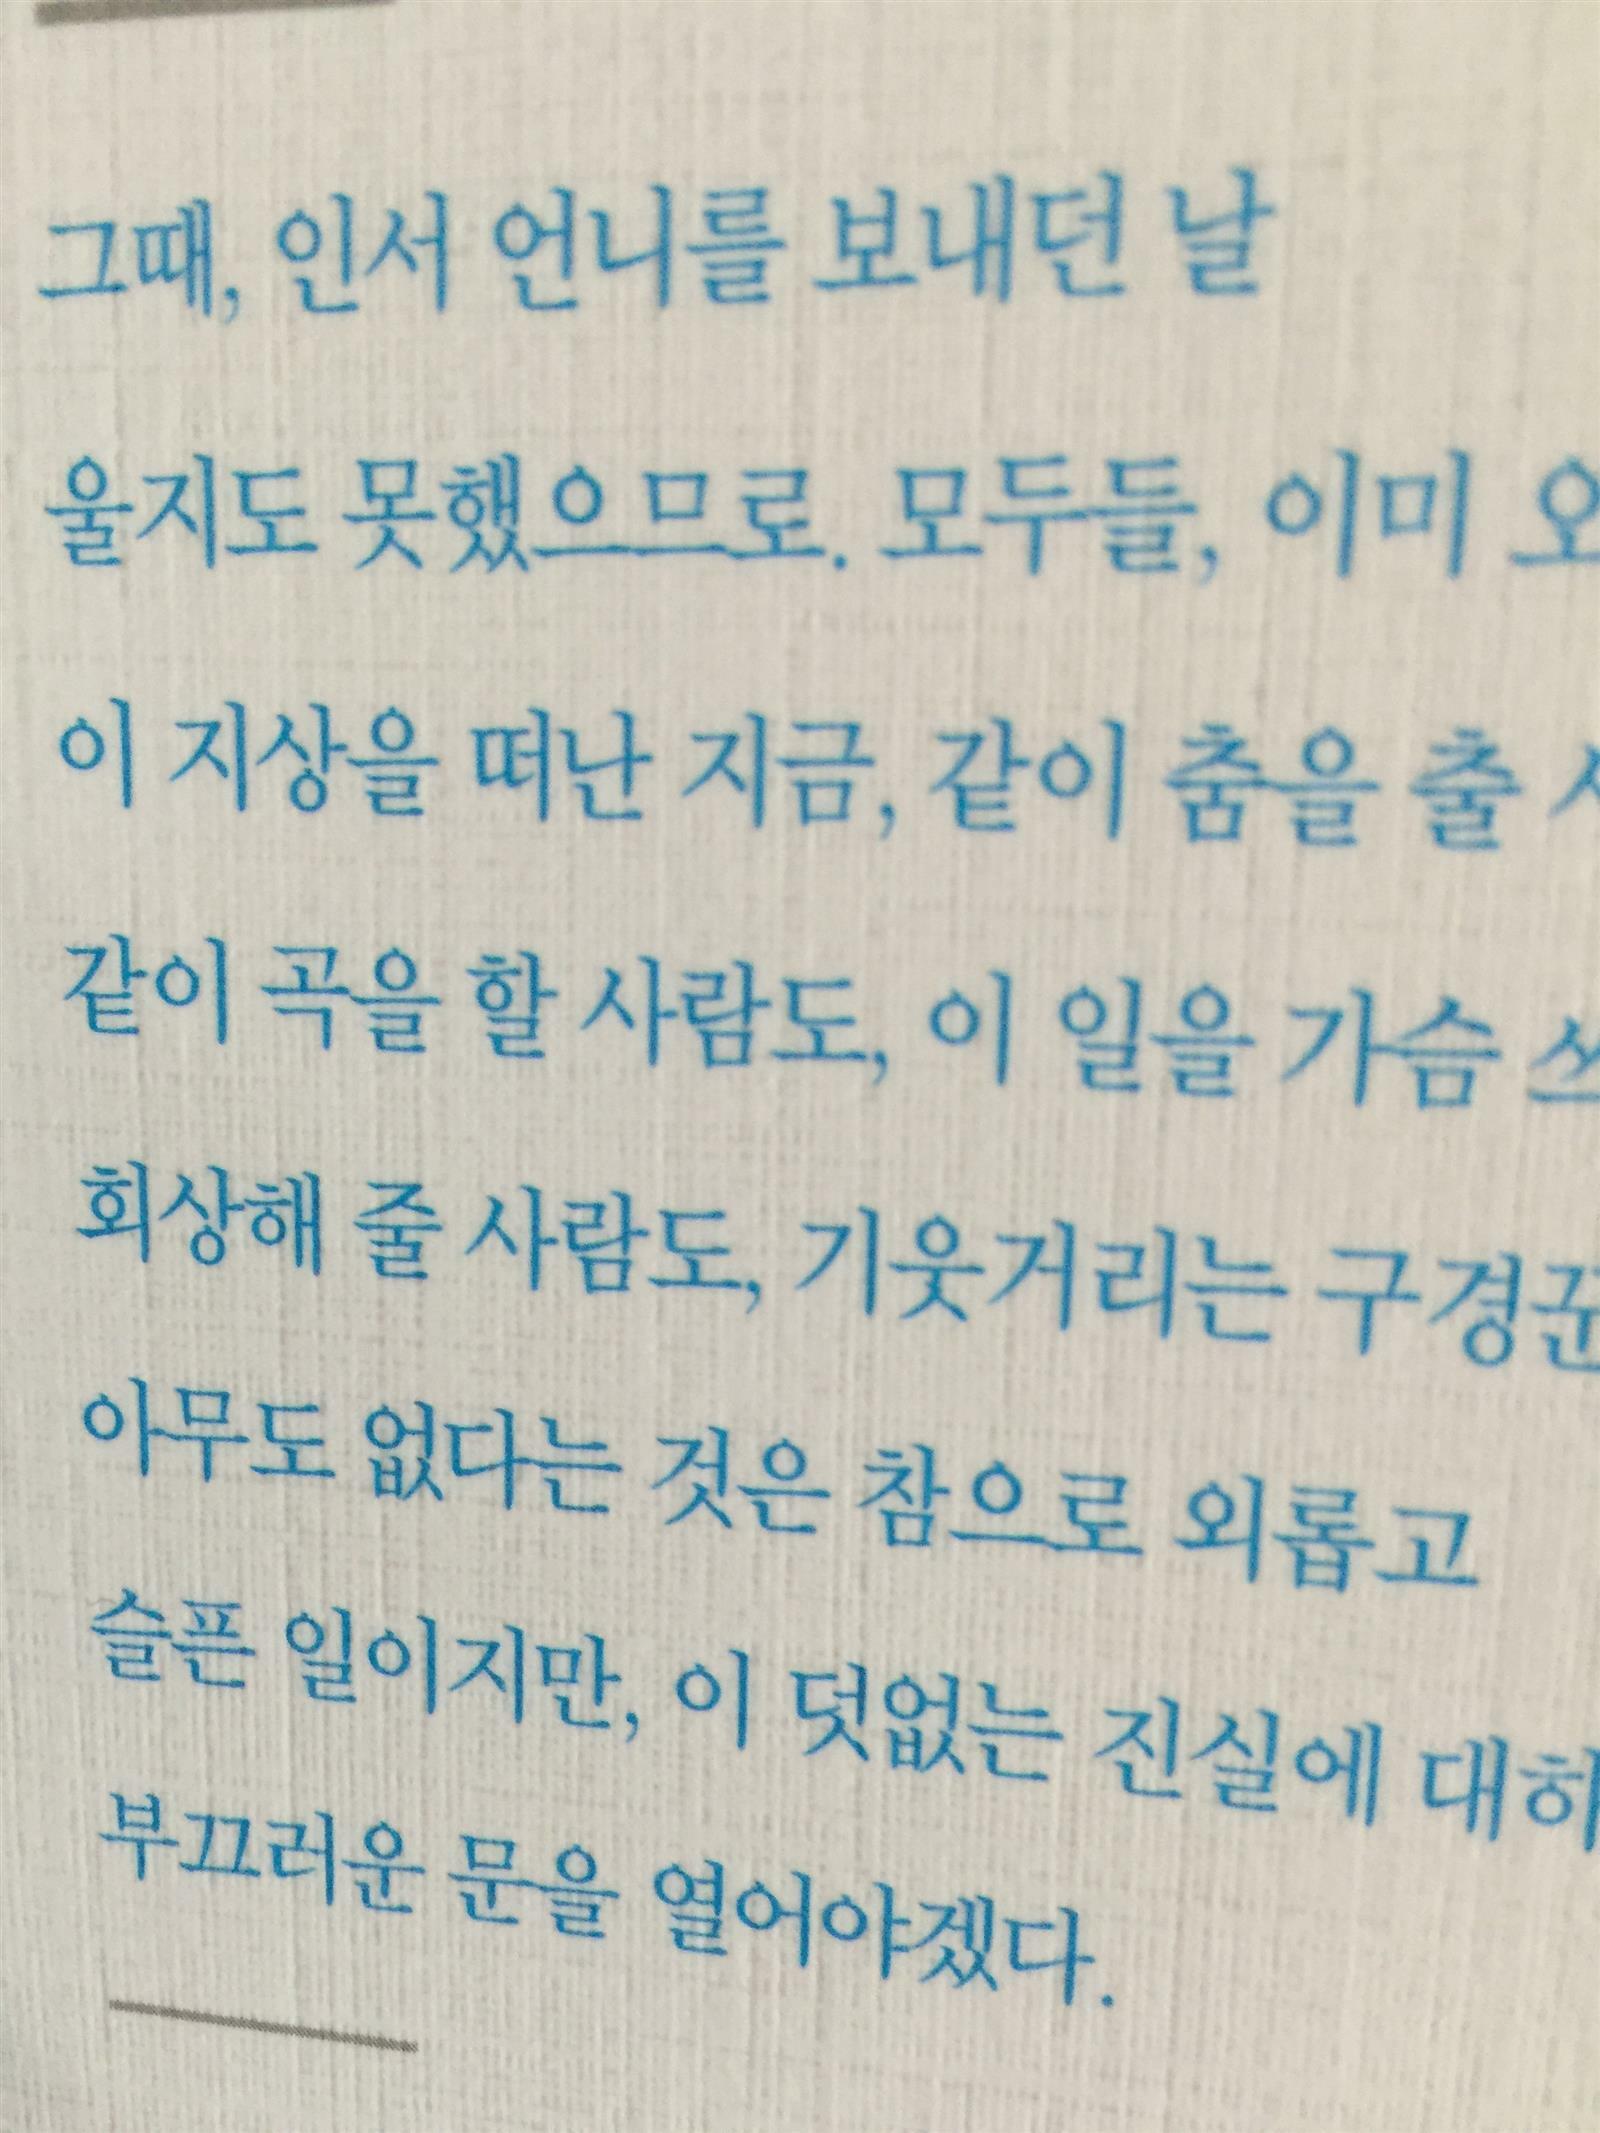 그때, 인서 언니를 보내던 날
울지도 못했으므로. 모두들, 이미
이 지상을 떠난 지금, 같이 춤을 출
같이 곡을 할 사람도, 이 일을 가슴
회상해 줄 사람도, 기웃거리는 구경꾼
아무도 없다는 것은 참으로 외롭고
슬픈 일이지만, 이 덧없는 진실에
부끄러운 문을 열어야겠다.